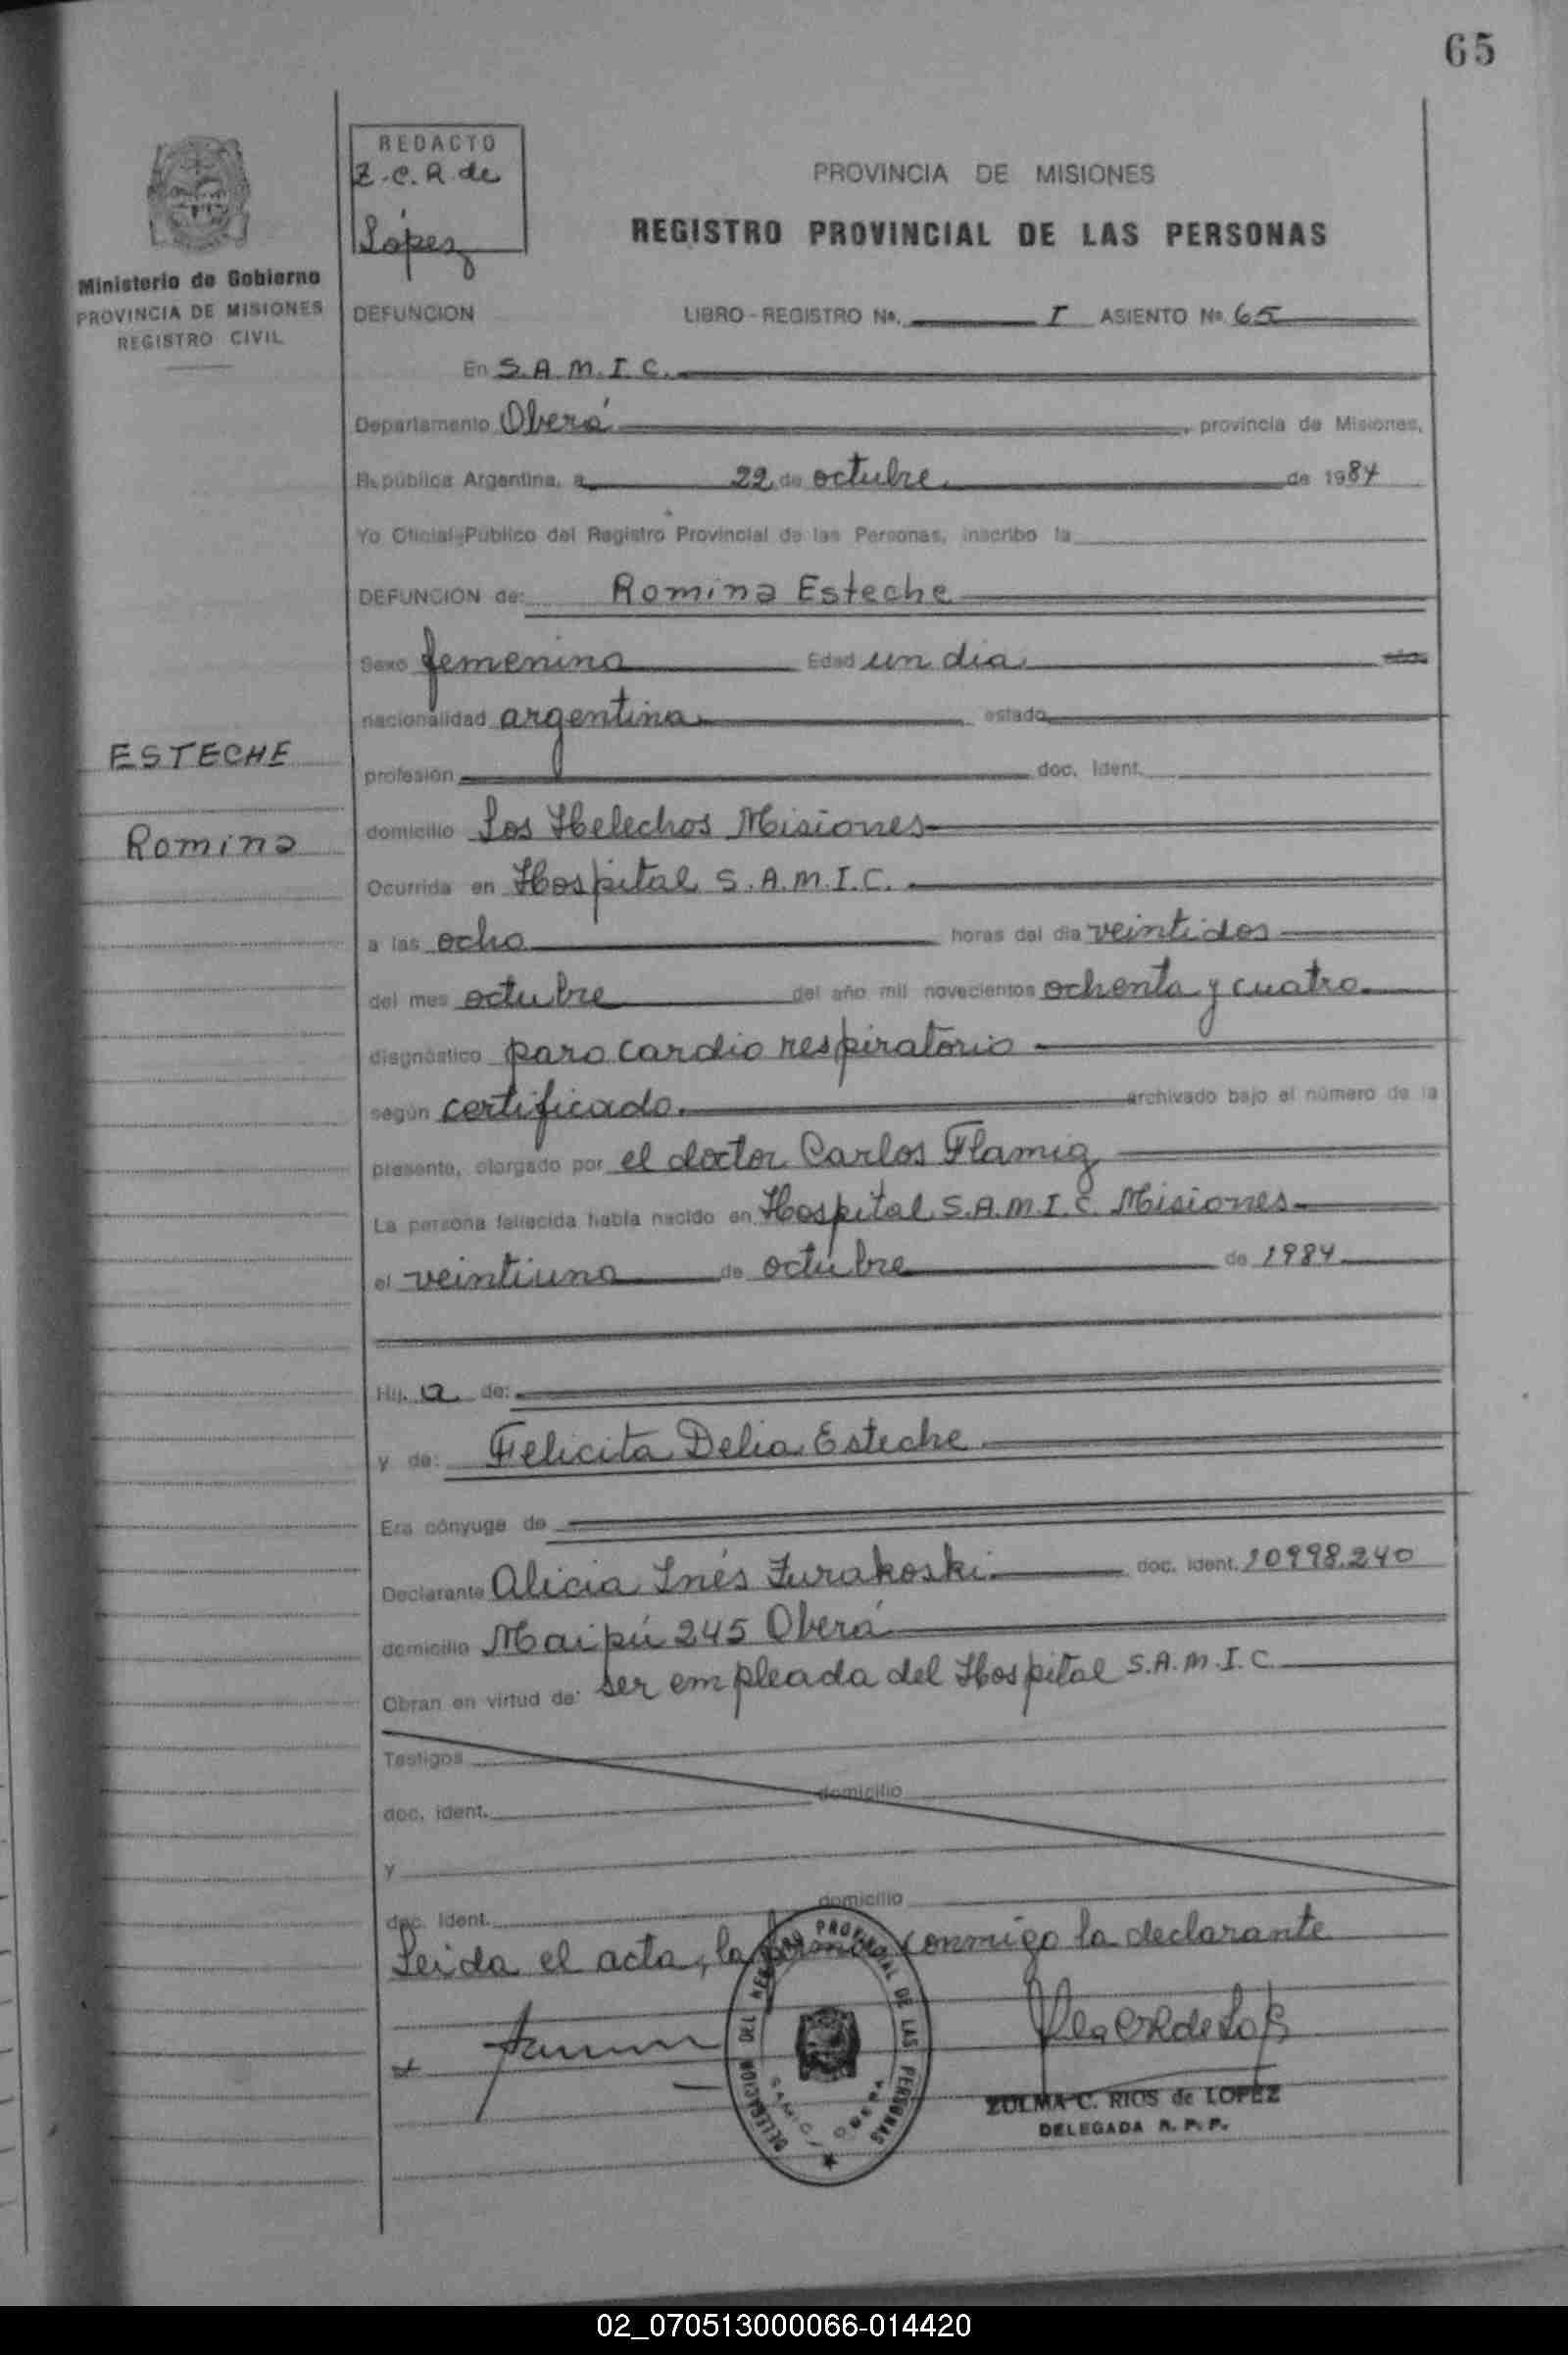 65
REDACTO
Z.C.R. de
López
Ministerio de Gobierno
PROVINCIA DE MISIONES
REGISTRO CIVIL
PROVINCIA DE MISIONES
REGISTRO PROVINCIAL DE LAS PERSONAS
DEFUNCION LIBRO-REGISTRO No. I ASIENTO No. 65
En S.A.M.I.C.
Departamento Oberá, provincia de Misiones,
República Argentina, a 22 de octubre de 1984
Yo Oficial Público del Registro Provincial de las Personas, inscribo la
DEFUNCION de: Romina Esteche
Sexo femenino Edad un dia
nacionalidad argentina estado
ESTECHE
profesión doc. ident.
domicilio Los Helechos Misiones
Romina
Ocurrida en Hospital S.A.M.I.C.
a las ocho horas del día veintidos
del mes octubre del año mil novecientos ochenta y cuatro
diagnóstico paro cardio respiratorio
según certificado. archivado bajo el número de la
presente, otorgado por el doctor Carlos Flamig
La persona fallecida había nacido en Hospital S.A.M.I.C. Misiones
el veintiuno de octubre de 1984
Hij a de:
y de: Felicita Delia Esteche
Era cónyuge de
Declarante Alicia Inés Zurakoski doc. ident. 10998.240
domicilio Maipú 245 Oberá
Obran en virtud de: ser empleada del Hospital S.A.M.I.C
Testigos
doc. ident. domicilio
y
doc. ident. domicilio
Leida el acta, la firma conmigo la declarante
DELEGACION DEL REGISTRO PROVINCIAL DE LAS PERSONAS
SAMIC OBERA
ZULMA C. RIOS de LOPEZ
DELEGADA R. P. P.
02_070513000066-014420